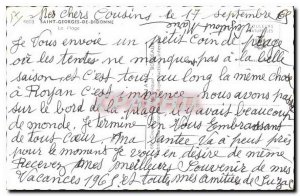 SAINT-GEORGES-DE-DIDONNE
La Plage
Mes chers Cousins le 17 septembre 69
Je Vous envoie un petit coin de plage
où les tentes ne manques pas à la belle
saison, et C'est tout au long la même chose
à Royan C'est immence nous avons pas
sur le bord de la plage il y avais beaucoup
de monde, Je termine en Vous Embrassant
de tout Cœur, Ma Santée Va a peut près
pour le moment Je vous en desire de même
Recevez mes meilleurs Souvenir de mes
Vacances 1969, et toutes mes amitiés de